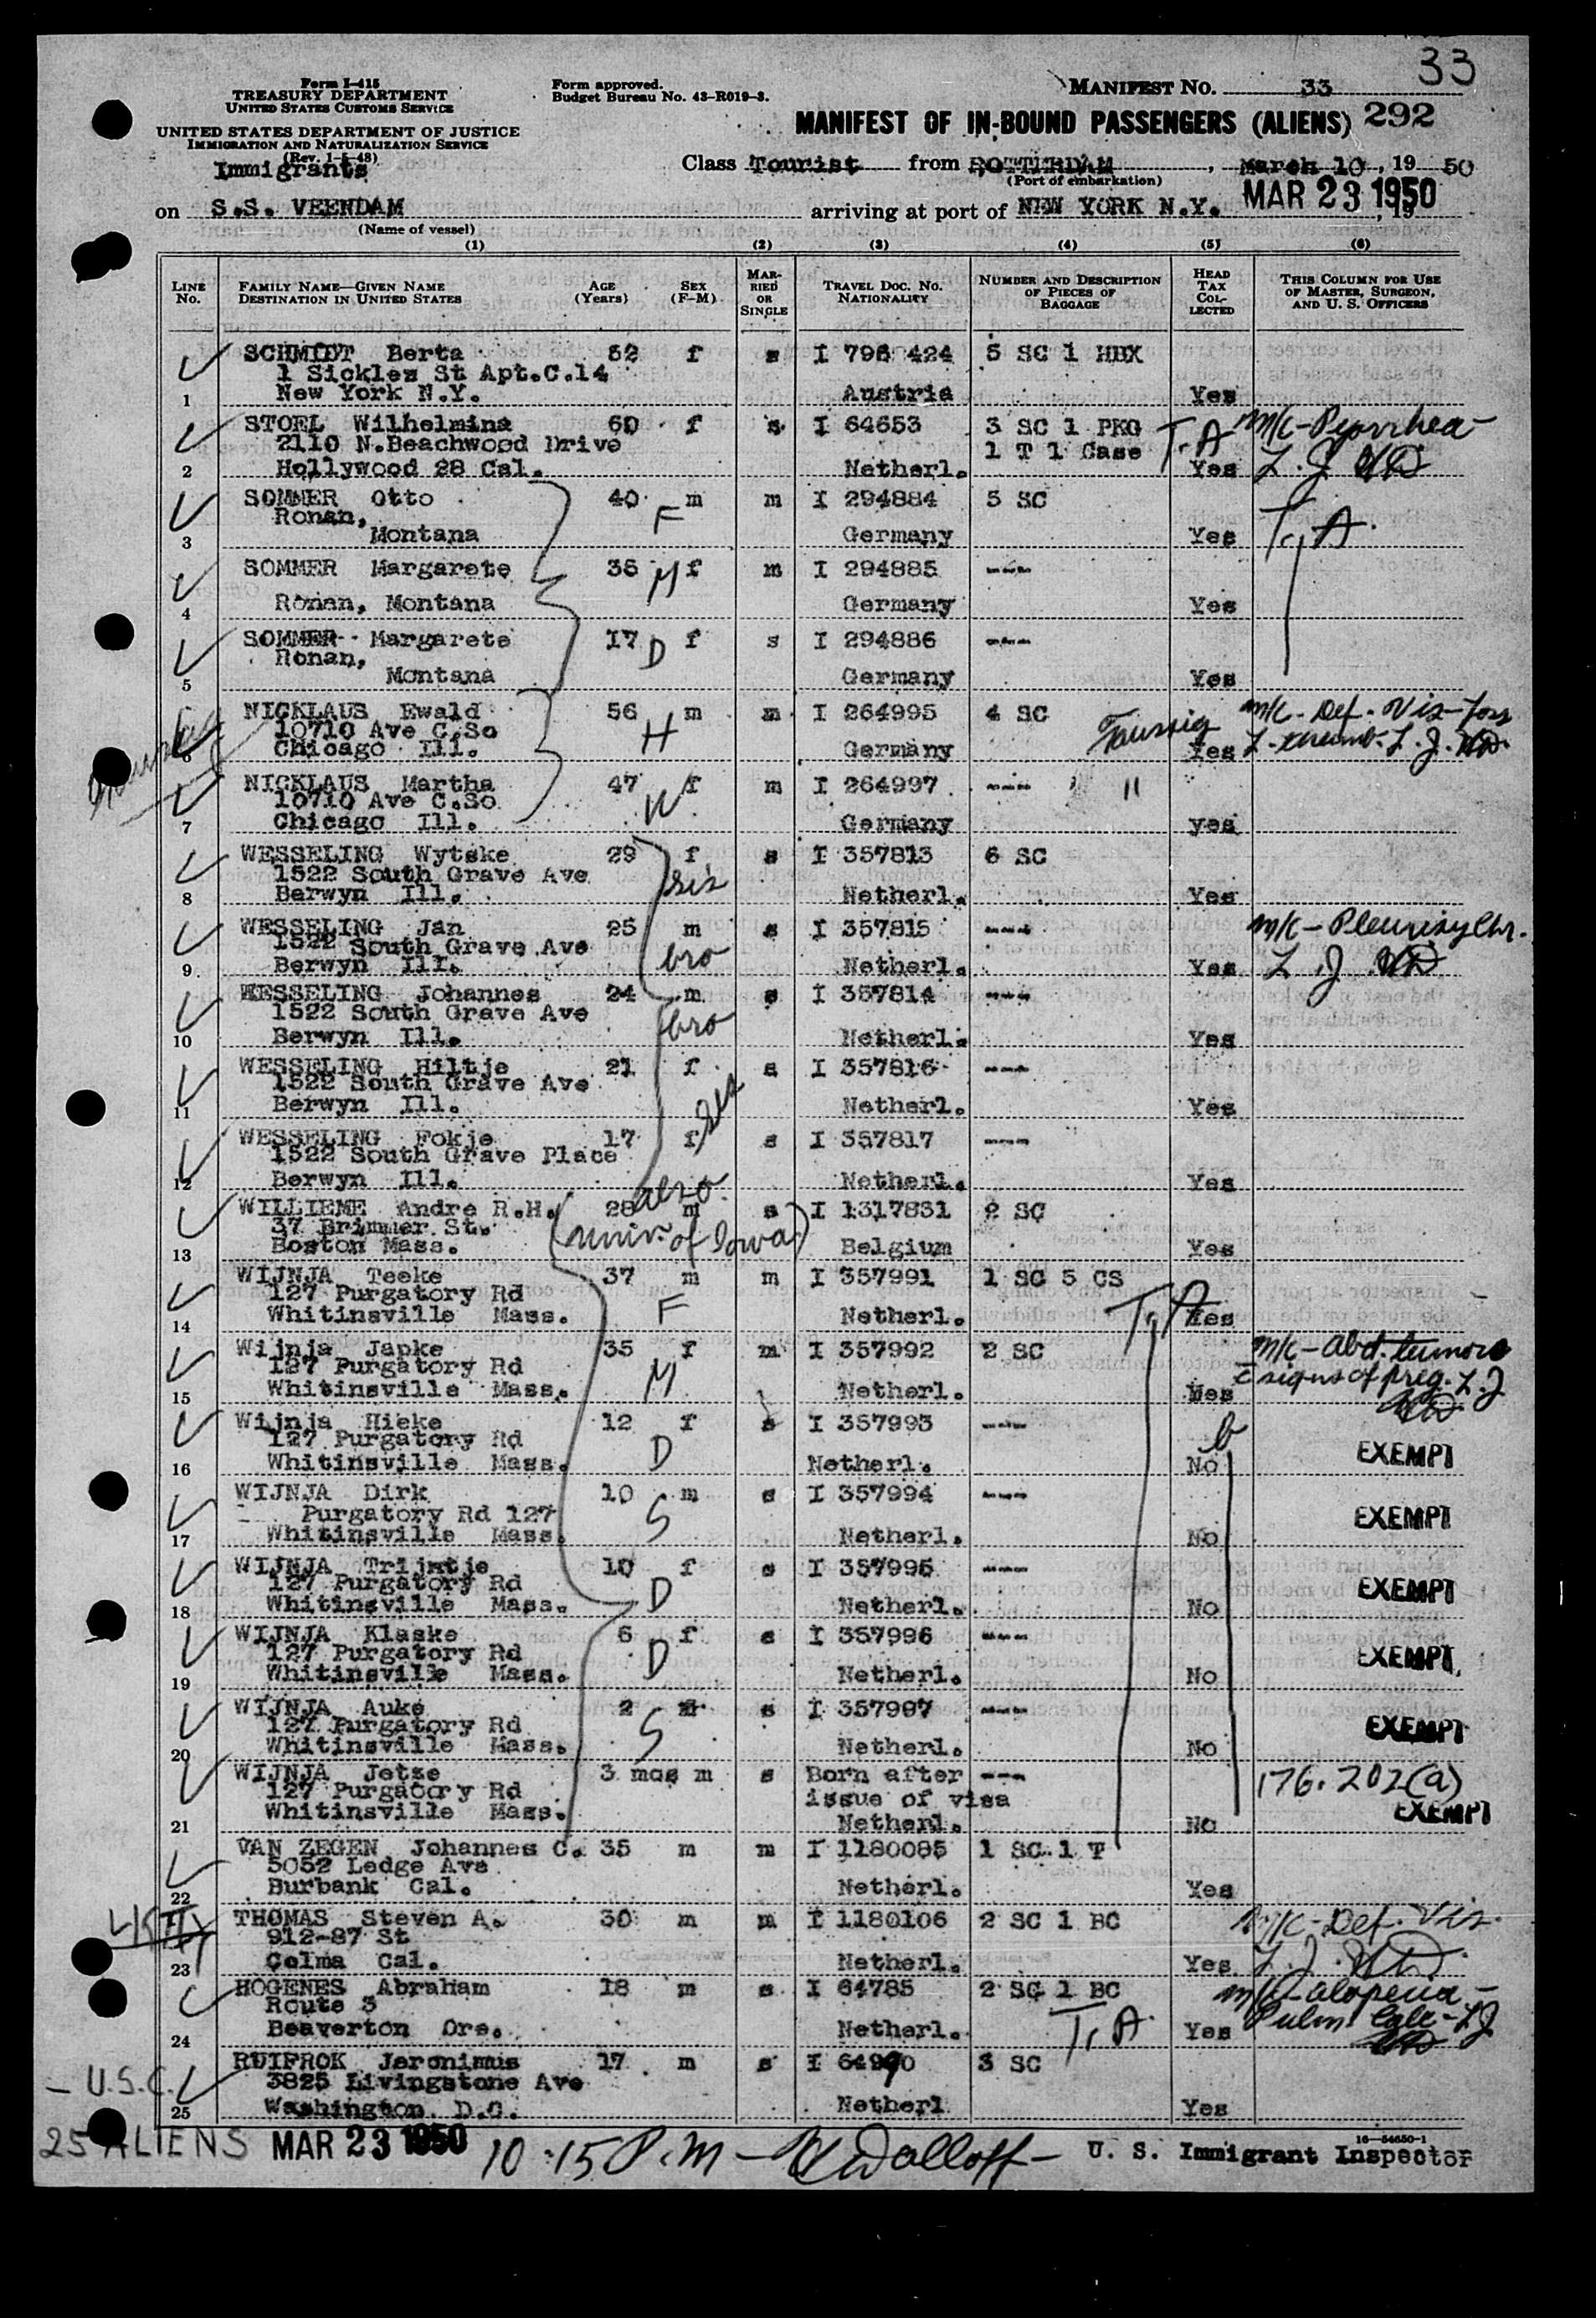 33
Form I-415
TREASURY DEPARTMENT
UNITED STATES CUSTOMS SERVICE
UNITED STATES DEPARTMENT OF JUSTICE
IMMIGRATION AND NATURALIZATION SERVICE
(Rev. 1-5-48)
Immigrants
Form approved.
Budget Bureau No. 43-R019-3.
MANIFEST NO. 33
MANIFEST OF IN-BOUND PASSENGERS (ALIENS) 292
Class Tourist from ROTTERDAM, March 10, 19 50
(Port of embarkation)
on S.S. VEENDAM arriving at port of NEW YORK N.Y. MAR 23 1950, 19
(Name of vessel)
(1) (2) (3) (4) (5) (6)
LINE NO. FAMILY NAME—GIVEN NAME DESTINATION IN UNITED STATES AGE (Years) SEX (F-M) MARRIED OR SINGLE TRAVEL DOC. NO. NATIONALITY NUMBER AND DESCRIPTION OF PIECES OF BAGGAGE HEAD TAX COLLECTED THIS COLUMN FOR USE OF MASTER, SURGEON, AND U. S. OFFICERS
SCHMIDT Berta 52 f s I 796 424 5 SC 1 HBX
1 Sickles St Apt.C.14
1 New York N.Y. Austria Yes
STOEL Wilhelmina 60 f s I 64653 3 SC 1 PKG T.A m/c-Pyorrhea-
2110 N.Beachwood Drive 1 T 1 Case
2 Hollywood 28 Cal. Netherl. Yes L.J. MD
SOMMER Otto 40 F m m I 294884 5 SC T.A.
Ronan,
3 Montana Germany Yes
SOMMER Margarete 36 M f m I 294885 ----
4 Ronan, Montana Germany Yes
SOMMER Margarete 17 D f s I 294886 ----
Ronan,
5 Montana Germany Yes
NICKLAUS Ewald 56 m m I 264995 4 SC Taussig m/c-Def. Vis-
10710 Ave C.So H
6 Chicago Ill. Germany Yes L.J. MD.
NICKLAUS Martha 47 f m I 264997 ---- "
10710 Ave C.So W
7 Chicago Ill. Germany yes
WESSELING Wytske 29 f s I 357813 6 SC
1522 South Grave Ave sis
8 Berwyn Ill. Netherl. Yes
WESSELING Jan 25 m s I 357815 ---- m/c-Pleurisy Chr.
1522 South Grave Ave bro
9 Berwyn Ill. Netherl. Yes L.J. MD
WESSELING Johannes 24 m s I 357814 ----
1522 South Grave Ave bro
10 Berwyn Ill. Netherl. Yes
WESSELING Hiltje 21 f s I 357816 ----
1522 South Grave Ave sis
11 Berwyn Ill. Netherl. Yes
WESSELING Fokje 17 f s I 357817 ----
1522 South Grave Place
12 Berwyn Ill. also. Netherl. Yes
WILLIEME Andre R.H. 28 m s I 1317831 2 SC
37 Brimmer St. (univ. of Iowa)
13 Boston Mass. Belgium Yes
WIJNJA Teeke 37 m m I 357991 1 SC 5 CS
127 Purgatory Rd F T.A
14 Whitinsville Mass. Netherl. Yes
Wijnja Japke 35 f m I 357992 2 SC m/c-abd. tumor
127 Purgatory Rd M c signs of preg. L.J.
15 Whitinsville Mass. Netherl. Yes MD
Wijnja Hieke 12 f s I 357993 ----
127 Purgatory Rd D
16 Whitinsville Mass. Netherl. No EXEMPT
WIJNJA Dirk 10 m s I 357994 ----
Purgatory Rd 127 S EXEMPT
17 Whitinsville Mass. Netherl. No
WIJNJA Trijntje 10 f s I 357995 ----
127 Purgatory Rd D EXEMPT
18 Whitinsville Mass. Netherl. No
WIJNJA Klaske 6 f s I 357996 ----
127 Purgatory Rd D EXEMPT
19 Whitinsville Mass. Netherl. No
WIJNJA Auke 2 s I 357997 ----
127 Purgatory Rd S EXEMPT
20 Whitinsville Mass. Netherl. No
WIJNJA Jetze 3 mos m s Born after ---- 176.202(a)
127 Purgatory Rd issue of visa EXEMPT
21 Whitinsville Mass. Netherl. No
VAN ZEGEN Johannes C. 35 m m I 1180085 1 SC 1 T
5052 Ledge Ave
22 Burbank Cal. Netherl. Yes
THOMAS Steven A. 30 m m I 1180106 2 SC 1 BC m/c-Def. Vis.
912-87 St
23 Colma Cal. Netherl. Yes L.J. MD.
HOGENES Abraham 18 m s I 64785 2 SC 1 BC m/c-alopecia-
Route 3 T.A. Pulm Calc-L.J.
24 Beaverton Ore. Netherl. Yes MD
RUIFROK Jeronimus 17 m s I 64990 3 SC
- U.S.C. 3825 Livingstone Ave
25 Washington D.C. Netherl Yes
16-54650-1
25 ALIENS MAR 23 1950 10:15 P.M - - U. S. Immigrant Inspector